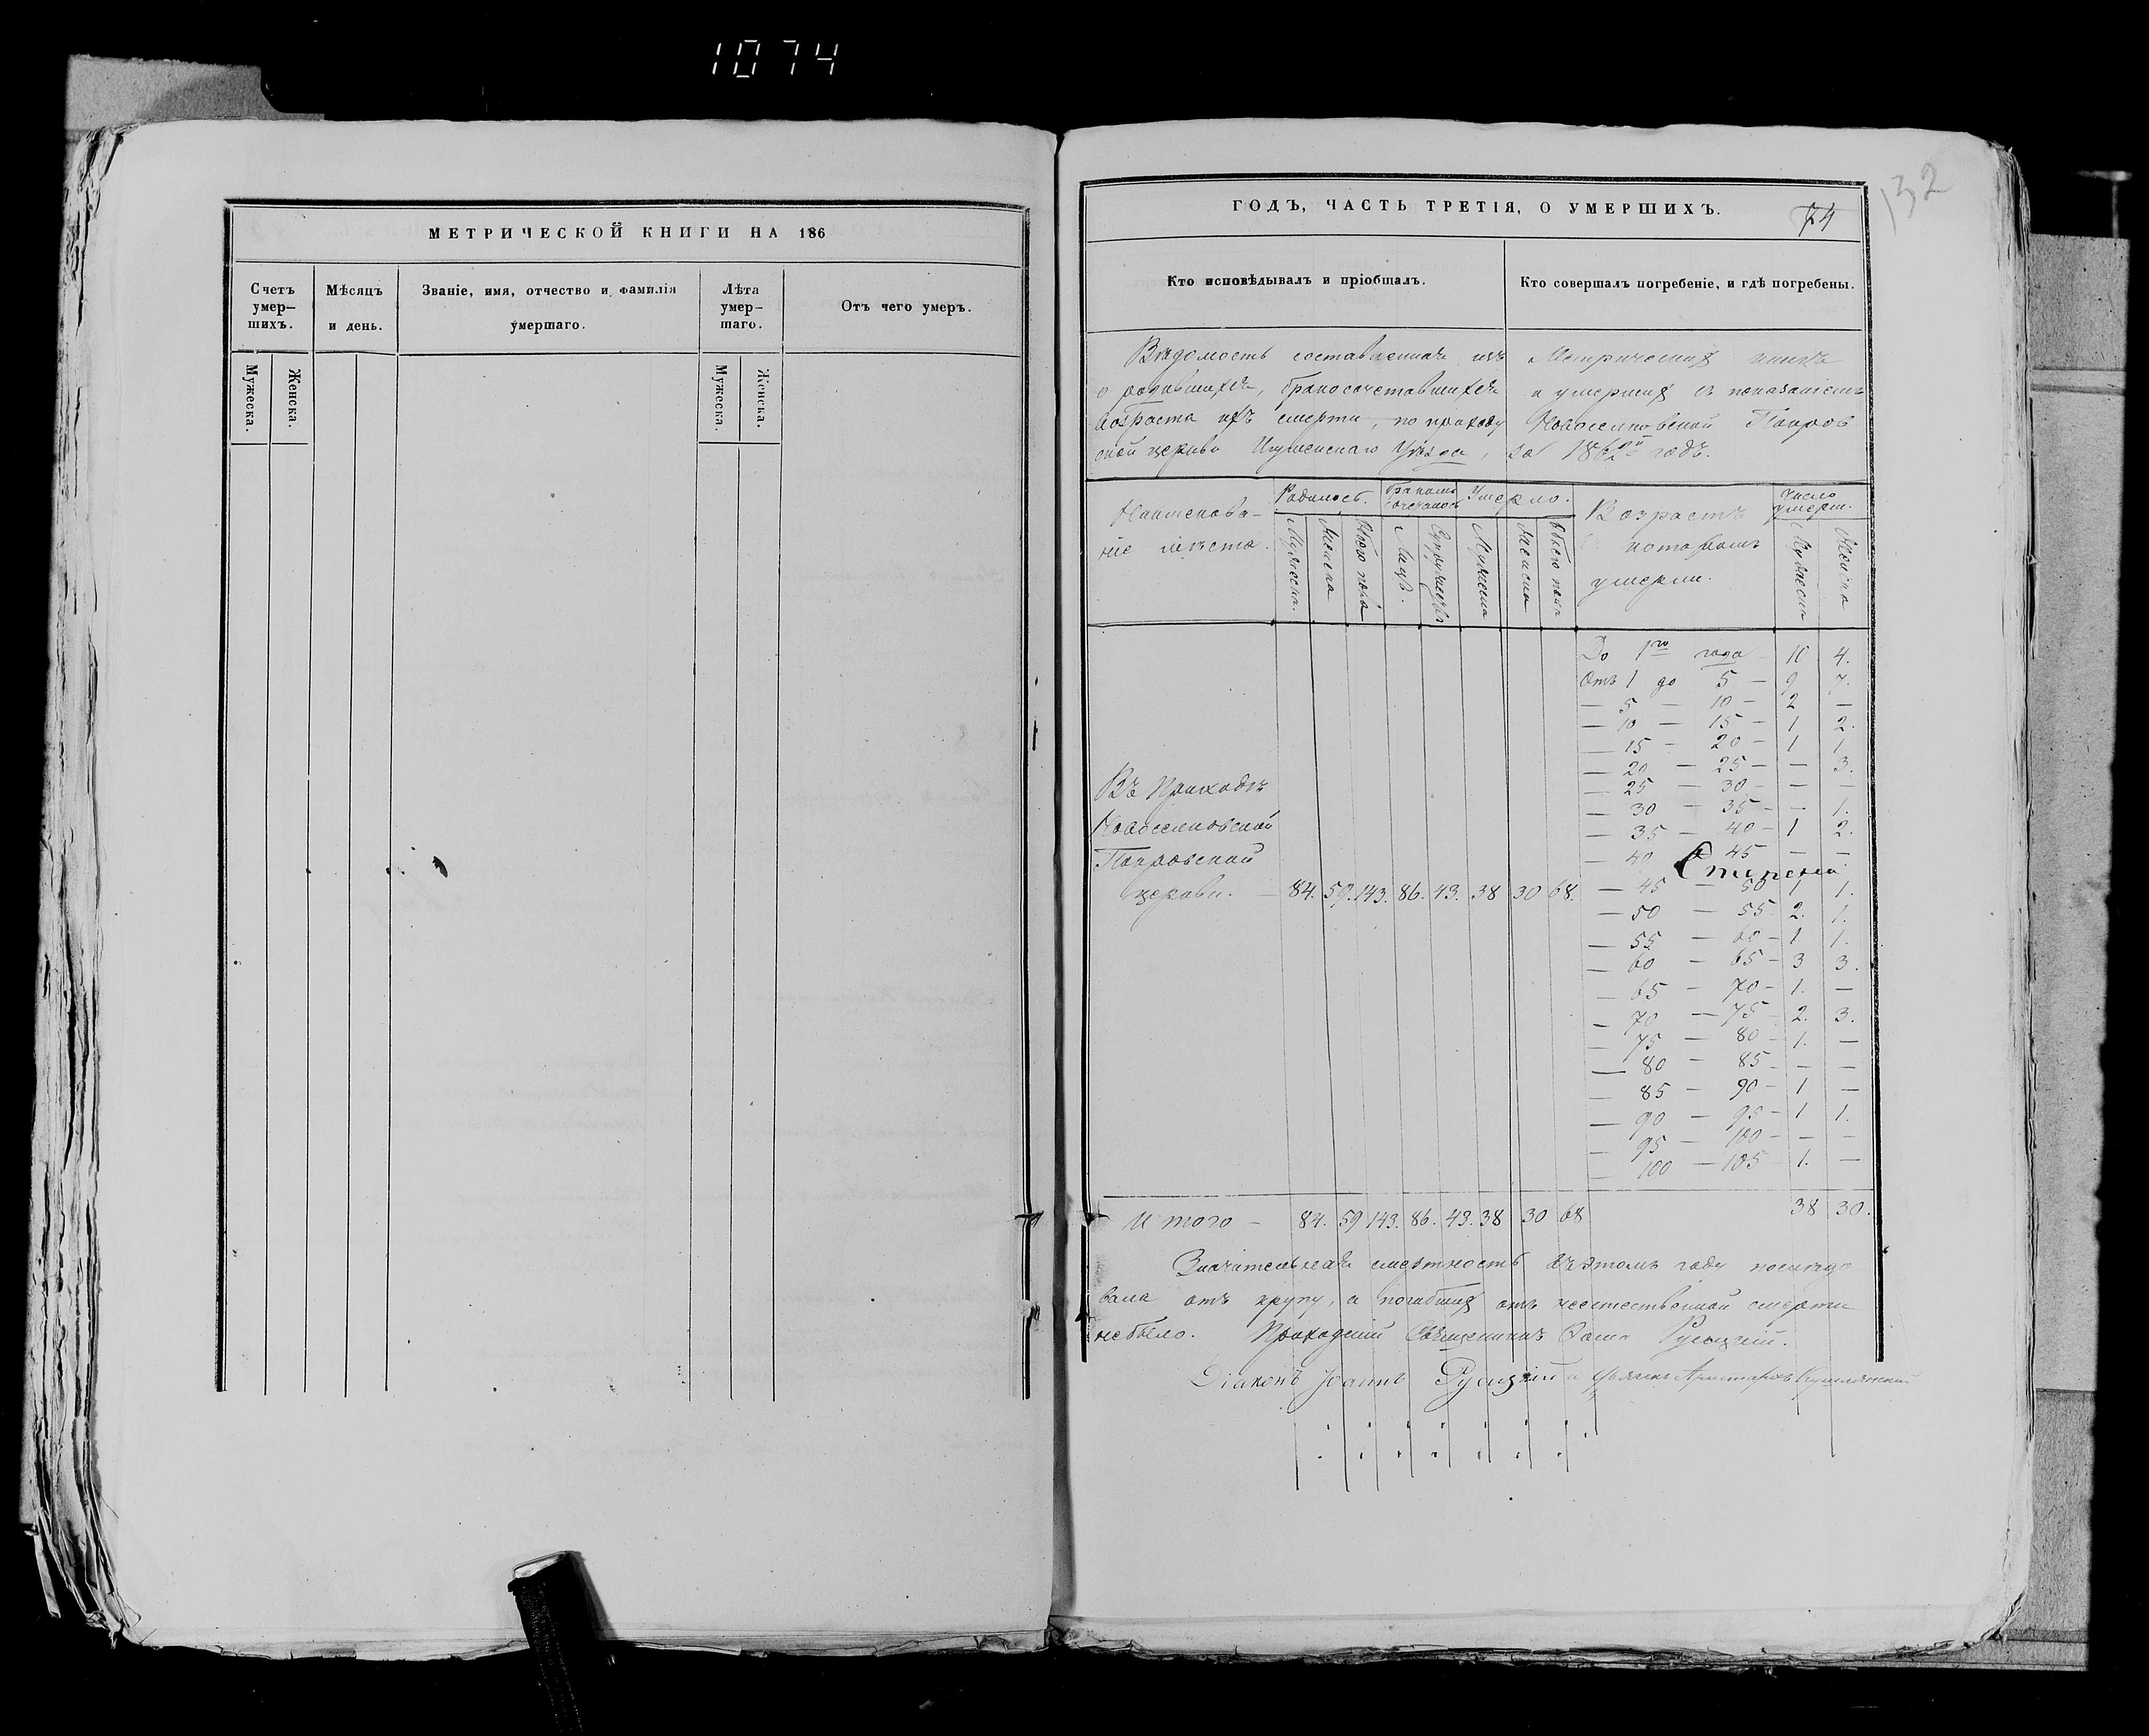 1074
МЕТРИЧЕСКОЙ КНИГИ НА 186
Счетъ умер—шихъ.
Мѣсяцъ и день.
Званіе, имя, отчество и фамилія умершаго.
Лѣта умер—шаго.
Отъ чего умеръ.
Мужеска.
Женска.
Мужеска.
Женска.
132
ГОДЪ, ЧАСТЬ ТРЕТІЯ, О УМЕРШИХЪ.
74
Кто исповѣдывалъ и пріобщалъ.
Кто совершалъ погребеніе, и гдѣ погребены.
Вѣдомость составленная изъ Метрическихъ книгъ
о родившихся, бракосочетавшихся и умершихъ съ показаніемъ
возраста ихъ смерти, по приходу Новоселковской Покров
ской церкви Игуменскаго Уѣзда, за 1862й годъ.
Наименова-
ніе мѣста.
Родилось.
Мужеска.
Женска
Обоего пола
Бракомъ сочеталось
Лицъ.
Супружествъ
Умерло.
Мужеска
Женска
Обоего пола
Возрастъ
умерш.
Число умерш.
Мужеска
Женска
До 1го года — 10 4.
Отъ 1 до 5 — 9 7.
— 5 — 10 — 2 —
— 10 — 15 — 1 2.
— 15 — 20 — 1 1.
— 20 — 25 — — 3.
— 25 — 30 — — —
— 30 — 35 — — 1.
— 35 — 40 — 1 2.
— 40 — 45 — — —
Степеній
— 45 — 50 1 1.
— 50 — 55 2. 1.
— 55 — 60 — 1 1.
— 60 — 65 — 3 3.
— 65 — 70 — 1. —
— 70 — 75 — 2. 3.
— 75 — 80 — 1. —
— 80 — 85 — — —
— 85 — 90 — 1 —
— 90 — 95 — 1 1.
— 95 — 100 — — —
— 100 — 105 — 1. —
Въ приходѣ
Новоселковской
Покровской
церкви. — 84. 59. 143. 86. 43. 38 30 68.
Итого — 84. 59 143. 86. 43. 38 30 68 38 30.
Значительная смертность въ этомъ году послѣдо
вала отъ крупу, а погибшихъ отъ неестественной смерти
не было. Приходскій Священникъ Фома Русецкій.
Діаконъ Іоаннъ Русецкій и Аристархъ